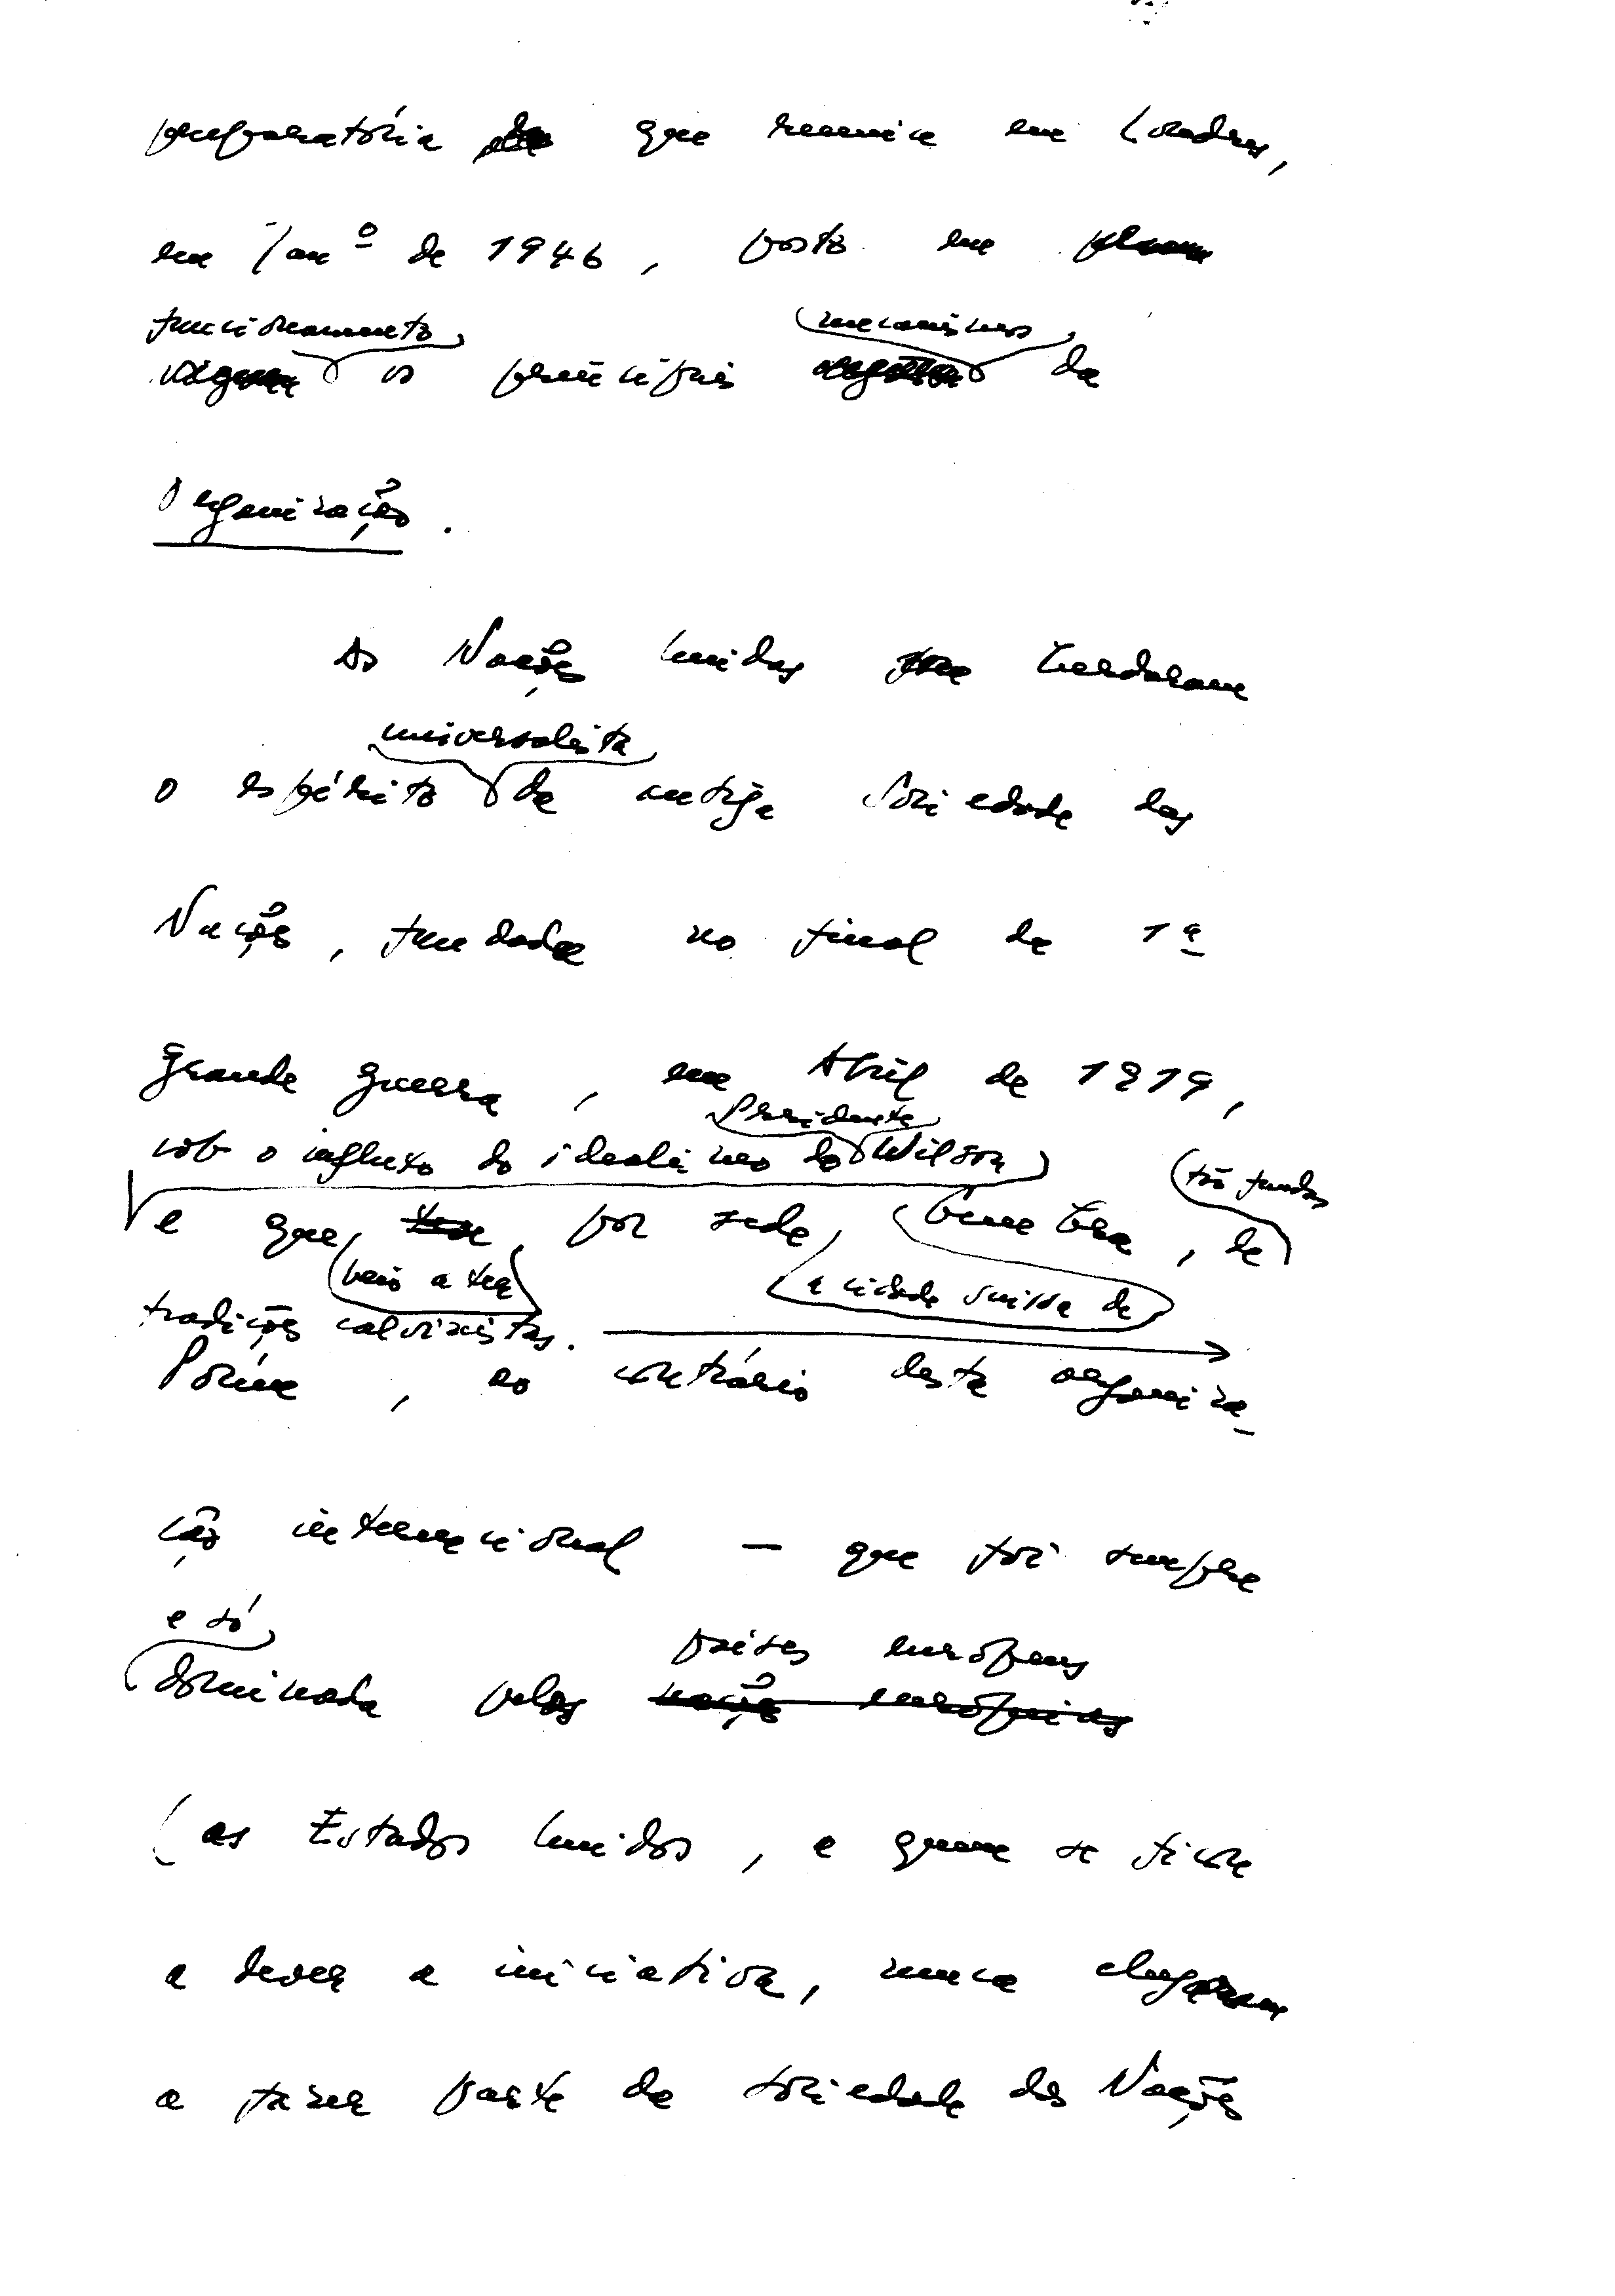 preparatória que reunira em Londres,
em Jan.º de 1946, posto em
funcionamento mecanismos
os principais da
Organização.
As Nações Unidas herdaram
universalista
o espírito da antiga Sociedade das
Nações, fundada no final da 1ª
grande guerra, em Abril de 1919,
Presidente
sob o influxo do idealismo do Wilson
tão fundas
e que, por sede, Genebra, de
veio a ter a cidade suissa de
tradições calvinistas.
Porém, ao contrário desta organiza-
ção internacional — que foi sempre
e só países europeus
dominada pelos nações európeias
(os Estados Unidos, a quem se ficou
a dever a iniciativa, nunca chegaram
a fazer parte da Sociedade das Nações